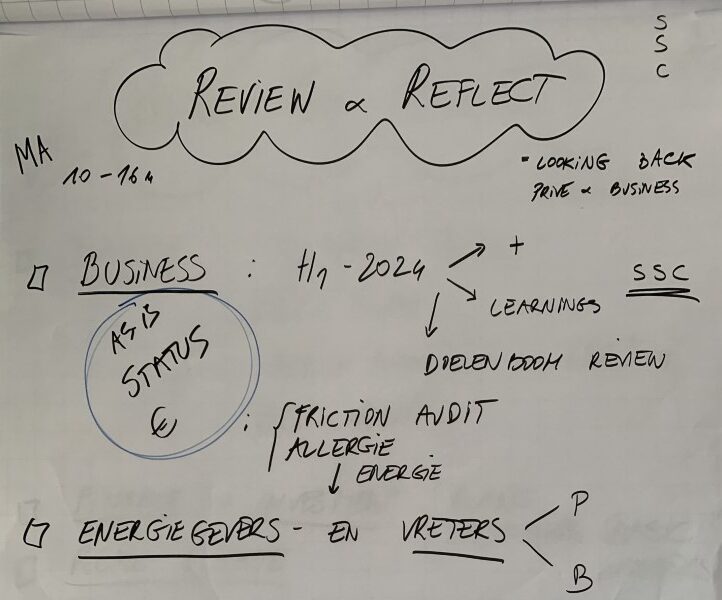 S
S
C
REVIEW & REFLECT
MA
10-16u
• LOOKING BACK
PRIVE & BUSINESS
BUSINESS : H1-2024 → +
SSC
→ LEARNINGS
↓
DOELENBOOM REVIEW
AS IS
STATUS
€
: { FRICTION AUDIT
ALLERGIE
↓ ENERGIE
ENERGIEGEVERS - EN VRETERS
P
B